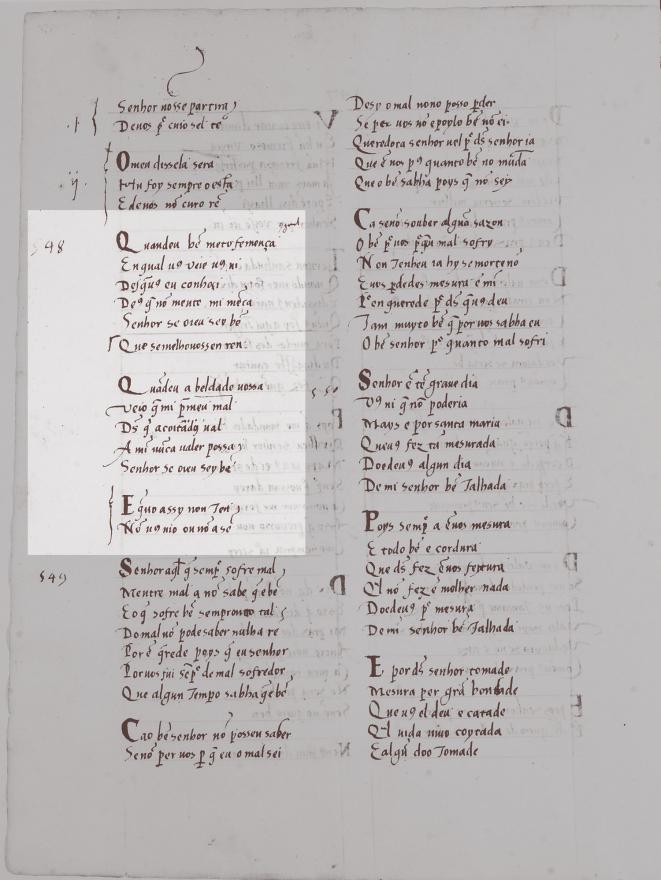 Senhor nosse partira
De uos pᵉ cuio sel te
·j·
O meu dissela sera
ij.
E de uos nō curo rē
548
Quandeu bē mero femença
En qual uꝯ ueie uꝯ ui
Des q̄uꝯ eu conhoçi
Deꝯ q̄ nō mente, mi mēta
Senhor se oieu sey bē
Que semelhouossen ren
Quādeu a beldade uossa
Veio q̄ mi p̄ meu mal
Ds q̄ a coitadꝯ ual
A mi nūca ualer possa
Senhor se oieu sey be
E que assy non Ten
Nō uꝯ uio ou nō a sē
549
Senhor aq̄l q̄ semp̄ sofre mal
Mentre mal a nō sabe q̄ e bē
E o q̄ sofre bē sempr outro tal
Do mal nō pode saber nulha re
Por ē q̄rede poys q̄ eu senhor
Por uos fui sēpᵉ de mal sofredor
Que algun Tempo sabha q̄ e bē
Ca o bē senhor nō posseu saber
Senō per uos p q̄ eu o mal sei
Desy o mal nono posso pder
Se per uos nō e poylo bē nō ei
Queredora senhor uel pᵉ ds senhor ia
Que ē uos pꝯ quanto bē no mūdā
Que o bē sabha poys q̄ nō sey
Ca se nō souber algūa sazon
O bē pᵉ uos p̄ q̄ eu mal sofry
Non Tenheu ia hy se morte nō
E uos pdedes mesura ē mi
Pᵉen querede pᵉ ds q̄ uꝯ deu
Tam muyto bē q̄ por uos sabba eu
O bē senhor pᵉ quanto mal sofri
550
Senhor ē tē graue dia
Vꝯ ui q̄ nō poderia
Mays e por santa maria
Que uꝯ fez tā mesurada
Doedeuꝯ algun dia
De mi senhor bē Talhada
Poys semp̄ a ē uos mesura
E todo bē e cordura
Que ds fez ē uos feytura
Ql nō fez ē molher nada
Doedeuꝯ pᵉ mesura
De mi senhor bē Talhada
E por ds senhor tomade
Mesura per grā bontade
Que uꝯ el deu e catade
Ql uida uiuo coytada
E algū doo Tomade